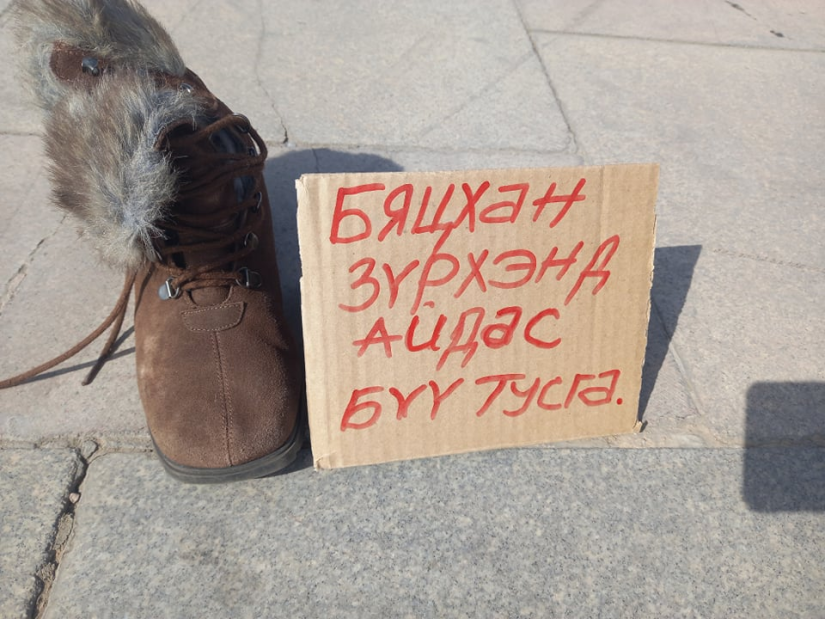 БЯЦХАН
ЗҮРХЭНД
АЙДАС
БҮҮ ТУСГА.